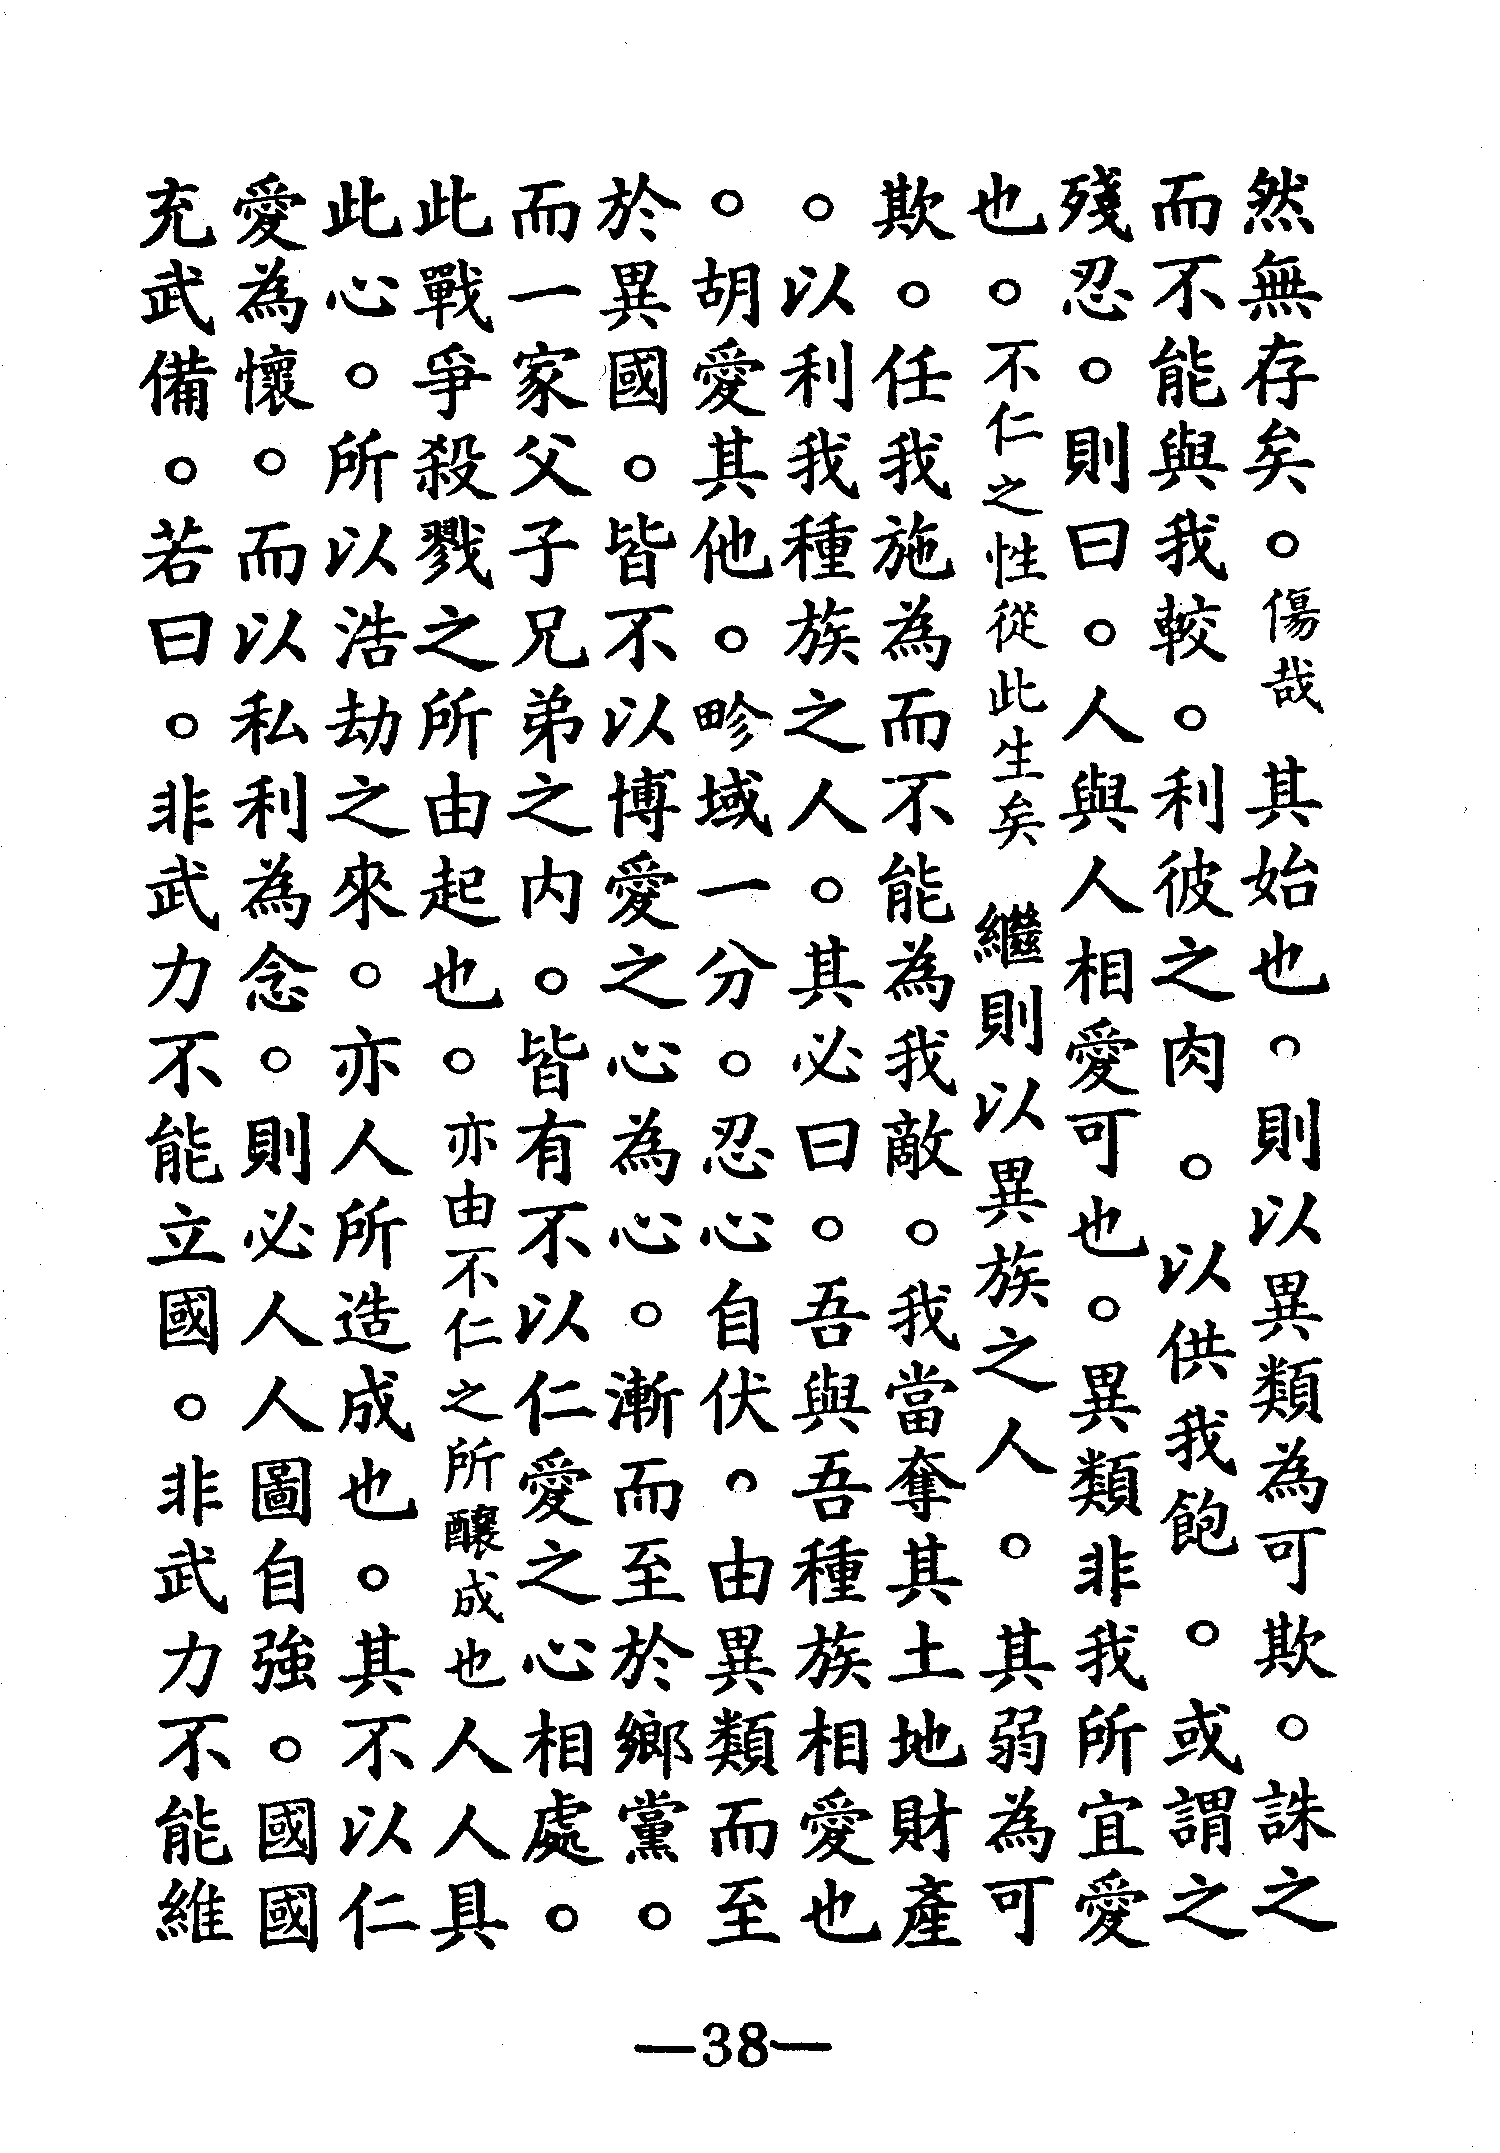 然無存矣。傷哉　其始也。則以異類為可欺。誅之
而不能與我較。利彼之肉。以供我飽。或謂之
殘忍。則曰。人與人相愛可也。異類非我所宜愛
也。不仁之性從此生矣　繼則以異族之人。其弱為可
欺。任我施為而不能為我敵。我當奪其土地財產
。以利我種族之人。其必曰。吾與吾種族相愛也
。胡愛其他。畛域一分。忍心自伏。由異類而至
於異國。皆不以博愛之心為心。漸而至於鄉黨。
而一家父子兄弟之內。皆有不以仁愛之心相處。
此戰爭殺戮之所由起也。亦由不仁之所釀成也人人具
此心。所以浩劫之來。亦人所造成也。其不以仁
愛為懷。而以私利為念。則必人人圖自強。國國
充武備。若曰。非武力不能立國。非武力不能維
—38—